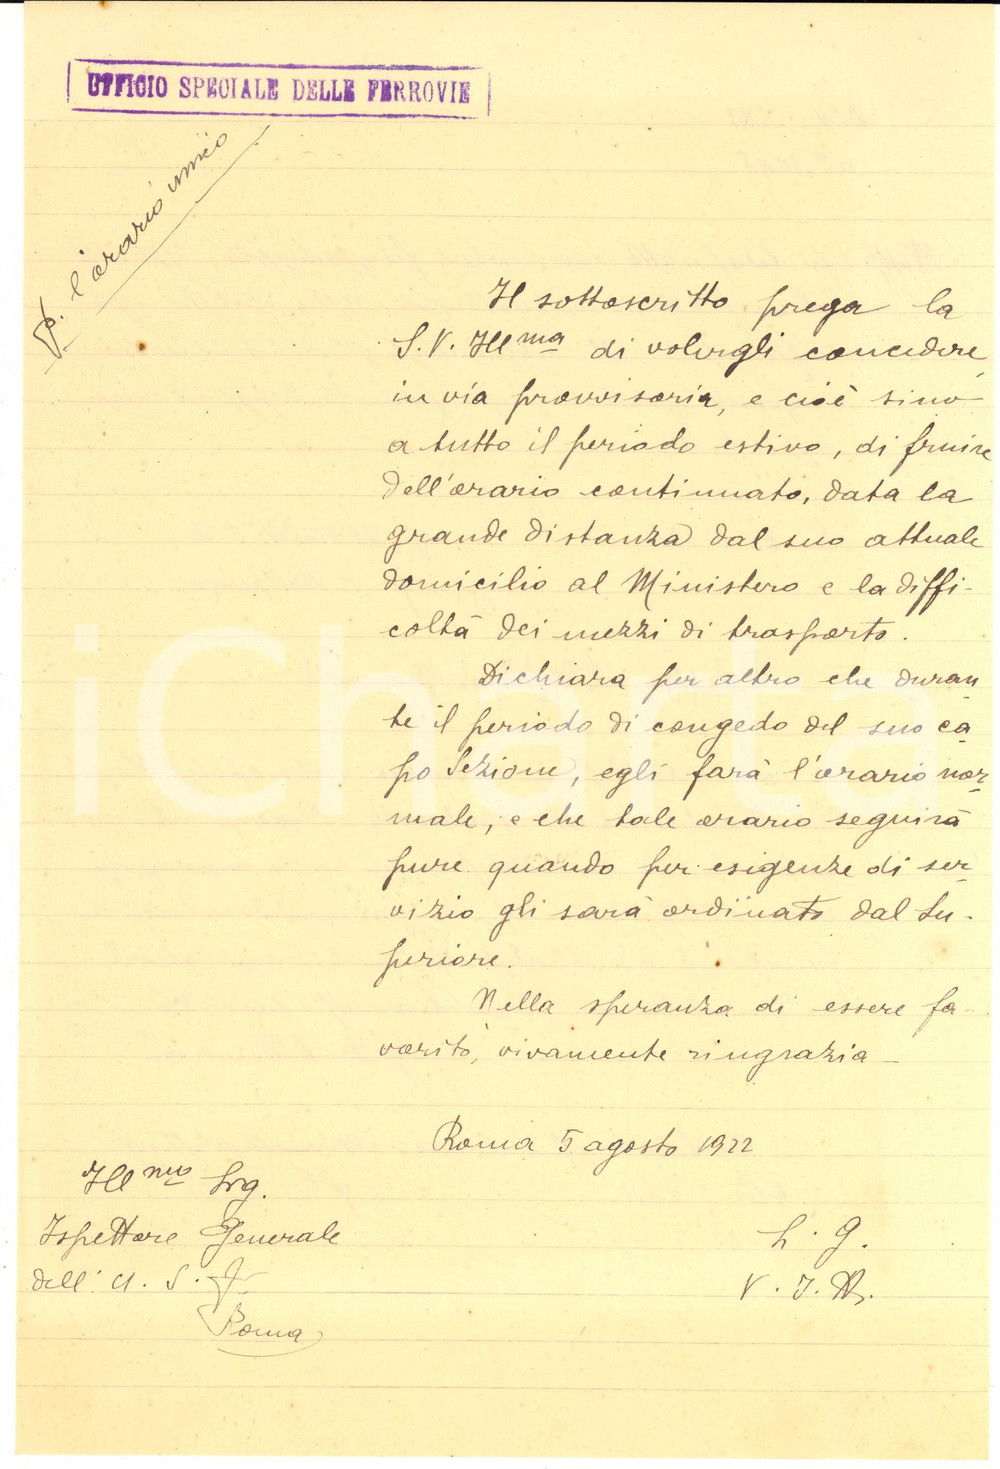 UFFICIO SPECIALE DELLE FERROVIE
p. l'orario unico
Il sottoscritto prega la
S.V. Ill^ma di volergli concedere,
in via provvisoria, e cioè sino
a tutto il periodo estivo, di fruire
dell'orario continuato, data la
grande distanza dal suo attuale
domicilio al Ministero e la diffi-
coltà dei mezzi di trasporto.
Dichiara per altro che duran
te il periodo di congedo del suo ca
po Sezione, egli farà l'orario nor
male, e che tale orario seguirà
pure quando per esigenze di ser
vizio gli sarà ordinato dal Su-
periore.
Nella speranza di essere fa-
vorito, vivamente ringrazia —
Roma 5 agosto 1922
Ill^mo Sig.
Ispettore Generale
dell' U. S. F.
Roma
L. G.
V. I.